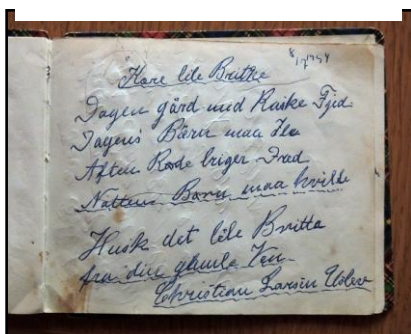 8/12 1954
Kære lile Britta
Dagen gård med Raske Fjid
Dagens Barn maa Ile
Aften Rode briger Fred
Nattens Barn maa hvile
Husk det lile Britta
fra din gamle Ven
Christian Larsen Uslev